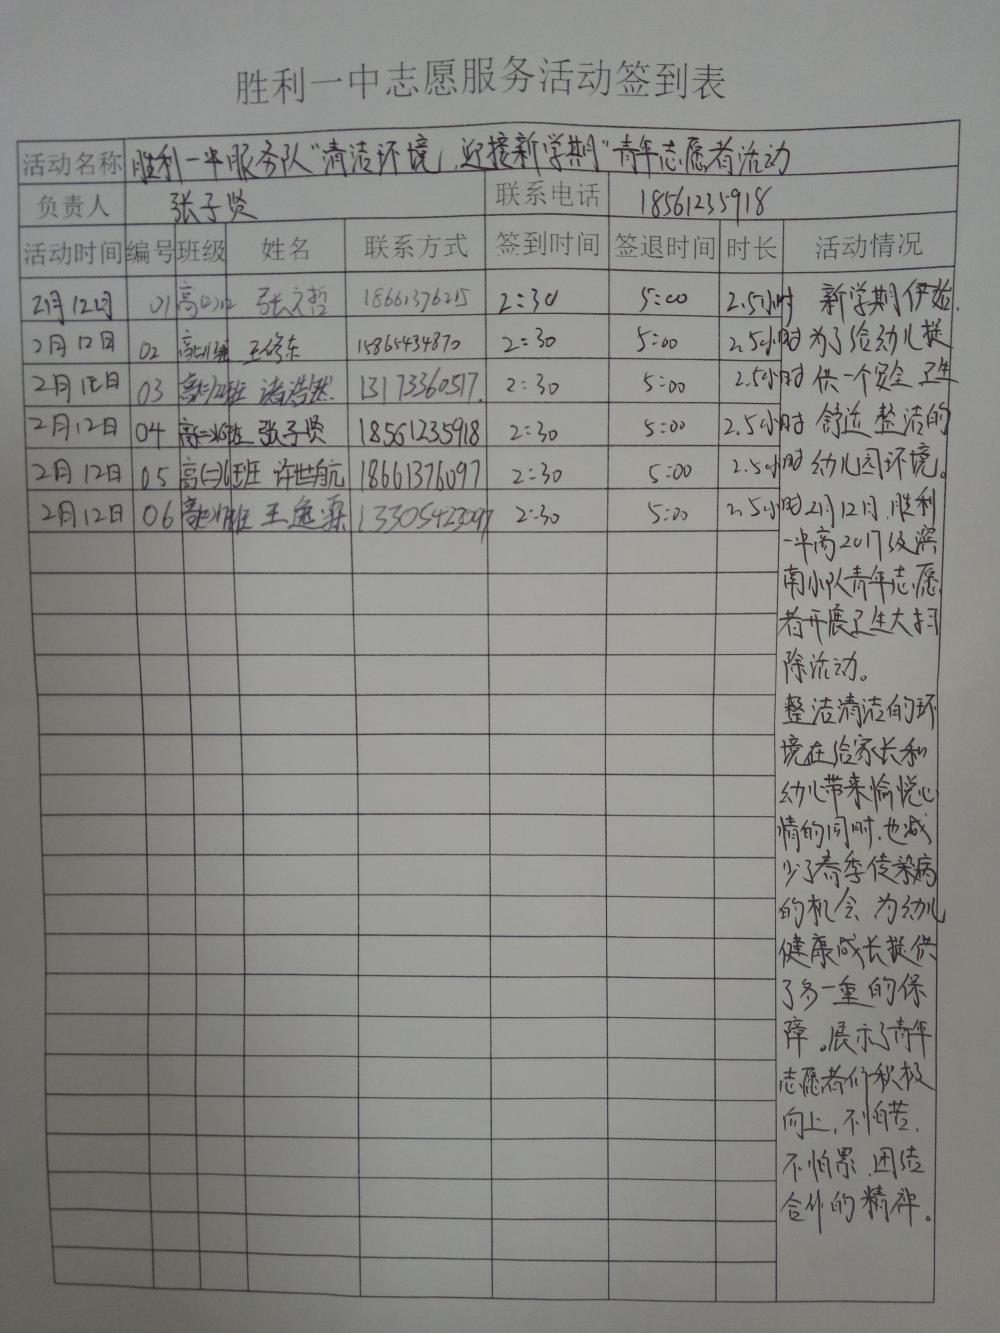 胜利一中志愿服务活动签到表
活动名称 胜利一中服务队"清洁环境,迎接新学期"青年志愿者活动
负责人 张子贤 联系电话 18561235918
活动时间 编号 班级 姓名 联系方式 签到时间 签退时间 时长 活动情况
2月12日 01 张文哲 18661376215 2:30 5:00 2.5小时
2月12日 02 王修东 15865434870 2:30 5:00 2.5小时
2月12日 03 诸浩然 13173360517 2:30 5:00 2.5小时
2月12日 04 张子贤 18561235918 2:30 5:00 2.5小时
2月12日 05 高(二)6班 许世航 18661376097 2:30 5:00 2.5小时
2月12日 06 王逸霖 13305423097 2:30 5:00 2.5小时
新学期伊始,
为了给幼儿提
供一个安全 卫生
舒适 整洁的
幼儿园环境。
2月12日,胜利
一中高2017级滨
南小队青年志愿
者开展卫生大扫
除活动。
整洁清洁的环
境在给家长和
幼儿带来愉悦心
情的同时,也减
少了春季传染病
的机会,为幼儿
健康成长提供
了多一重的保
障。展示了青年
志愿者们积极
向上,不怕苦,
不怕累,团结
合作的精神。